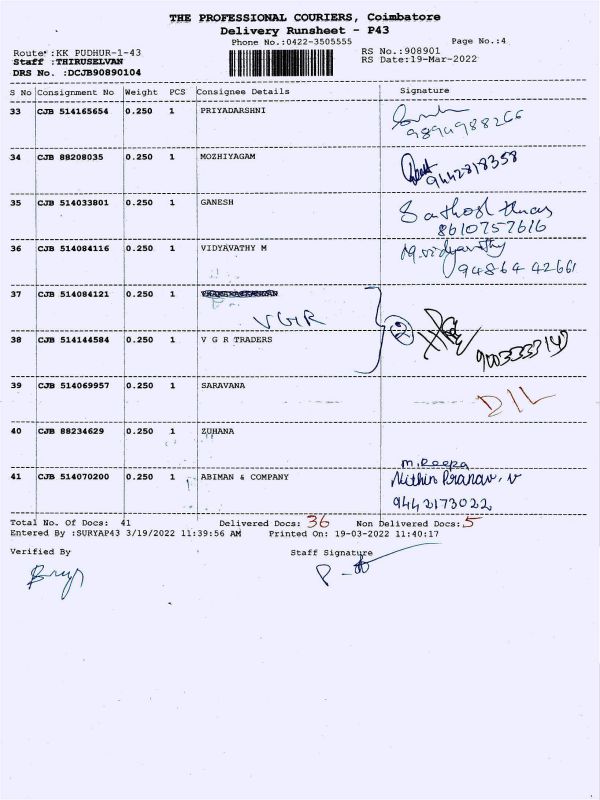 THE PROFESSIONAL COURIERS, Coimbatore
Delivery Runsheet - P43
Phone No.:0422-3505555 Page No.:4
Route :KK PUDHUR-1-43 RS No.:908901
Staff :THIRUSELVAN RS Date:19-Mar-2022
DRS No. :DCJB90890104
S No Consignment No Weight PCS Consignee Details Signature
33 CJB 514165654 0.250 1 PRIYADARSHNI
9894988266
34 CJB 88208035 0.250 1 MOZHIYAGAM
9442818358
35 CJB 514033801 0.250 1 GANESH
8610757616
36 CJB 514084116 0.250 1 VIDYAVATHY M M.vidyavathy
94864 42661
37 CJB 514084121 0.250 1
VGR
38 CJB 514144584 0.250 1 V G R TRADERS
39 CJB 514069957 0.250 1 SARAVANA
D/L
40 CJB 88234629 0.250 1 ZUHANA
M.Roopa
41 CJB 514070200 0.250 1 ABIMAN & COMPANY Nithin Pranav. V
9442173022
Total No. Of Docs: 41 Delivered Docs: 36 Non Delivered Docs: 5
Entered By :SURYAP43 3/19/2022 11:39:56 AM Printed On: 19-03-2022 11:40:17
Verified By Staff Signature